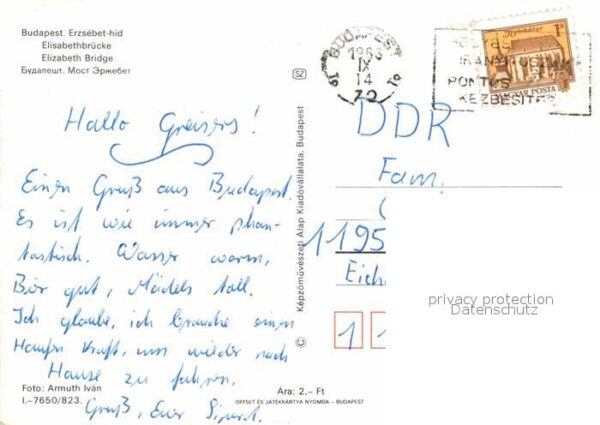 Budapest. Erzsébet-híd
Elisabethbrücke
Elizabeth Bridge
Будапешт. Мост Эржебет
SZ
BUDAPEST
IX
14
IRÁNYÍTÓSZÁM
PONTOS
KÉZBESÍTÉS
1 Ft
MAGYAR POSTA
Hallo Greisers!
Einen Gruß aus Budapest.
Es ist wie immer phan-
tastisch. Wasser warm,
Bier gut, Mädels toll.
Ich glaube, ich brauche einen
Haufen Kraft, um wieder nach
Hause zu fahren.
Gruß, Euer
DDR
Fam.
1195
Eich
1 1
privacy protection
Datenschutz
© Képzőművészeti Alap Kiadóvállalata, Budapest
Foto: Armuth Iván
I.-7650/823.
Ára: 2,- Ft
OFFSET ÉS JÁTÉKKÁRTYA NYOMDA - BUDAPEST